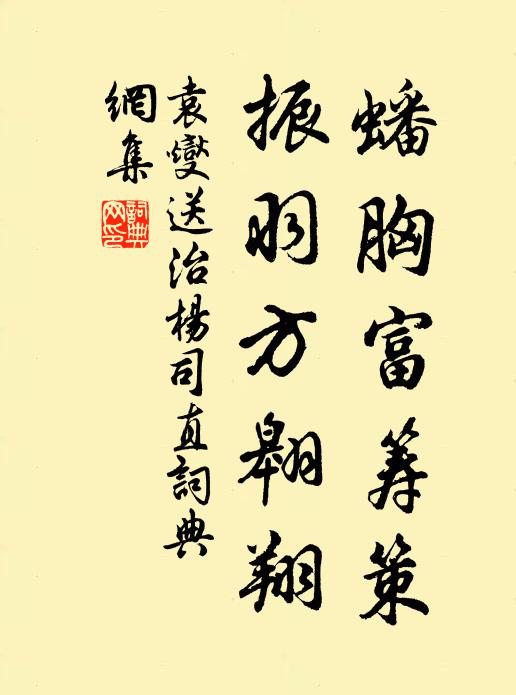 蟠胸富筹策
振羽方翱翔
袁燮送治楊司直詞典
網集
詞典
网印